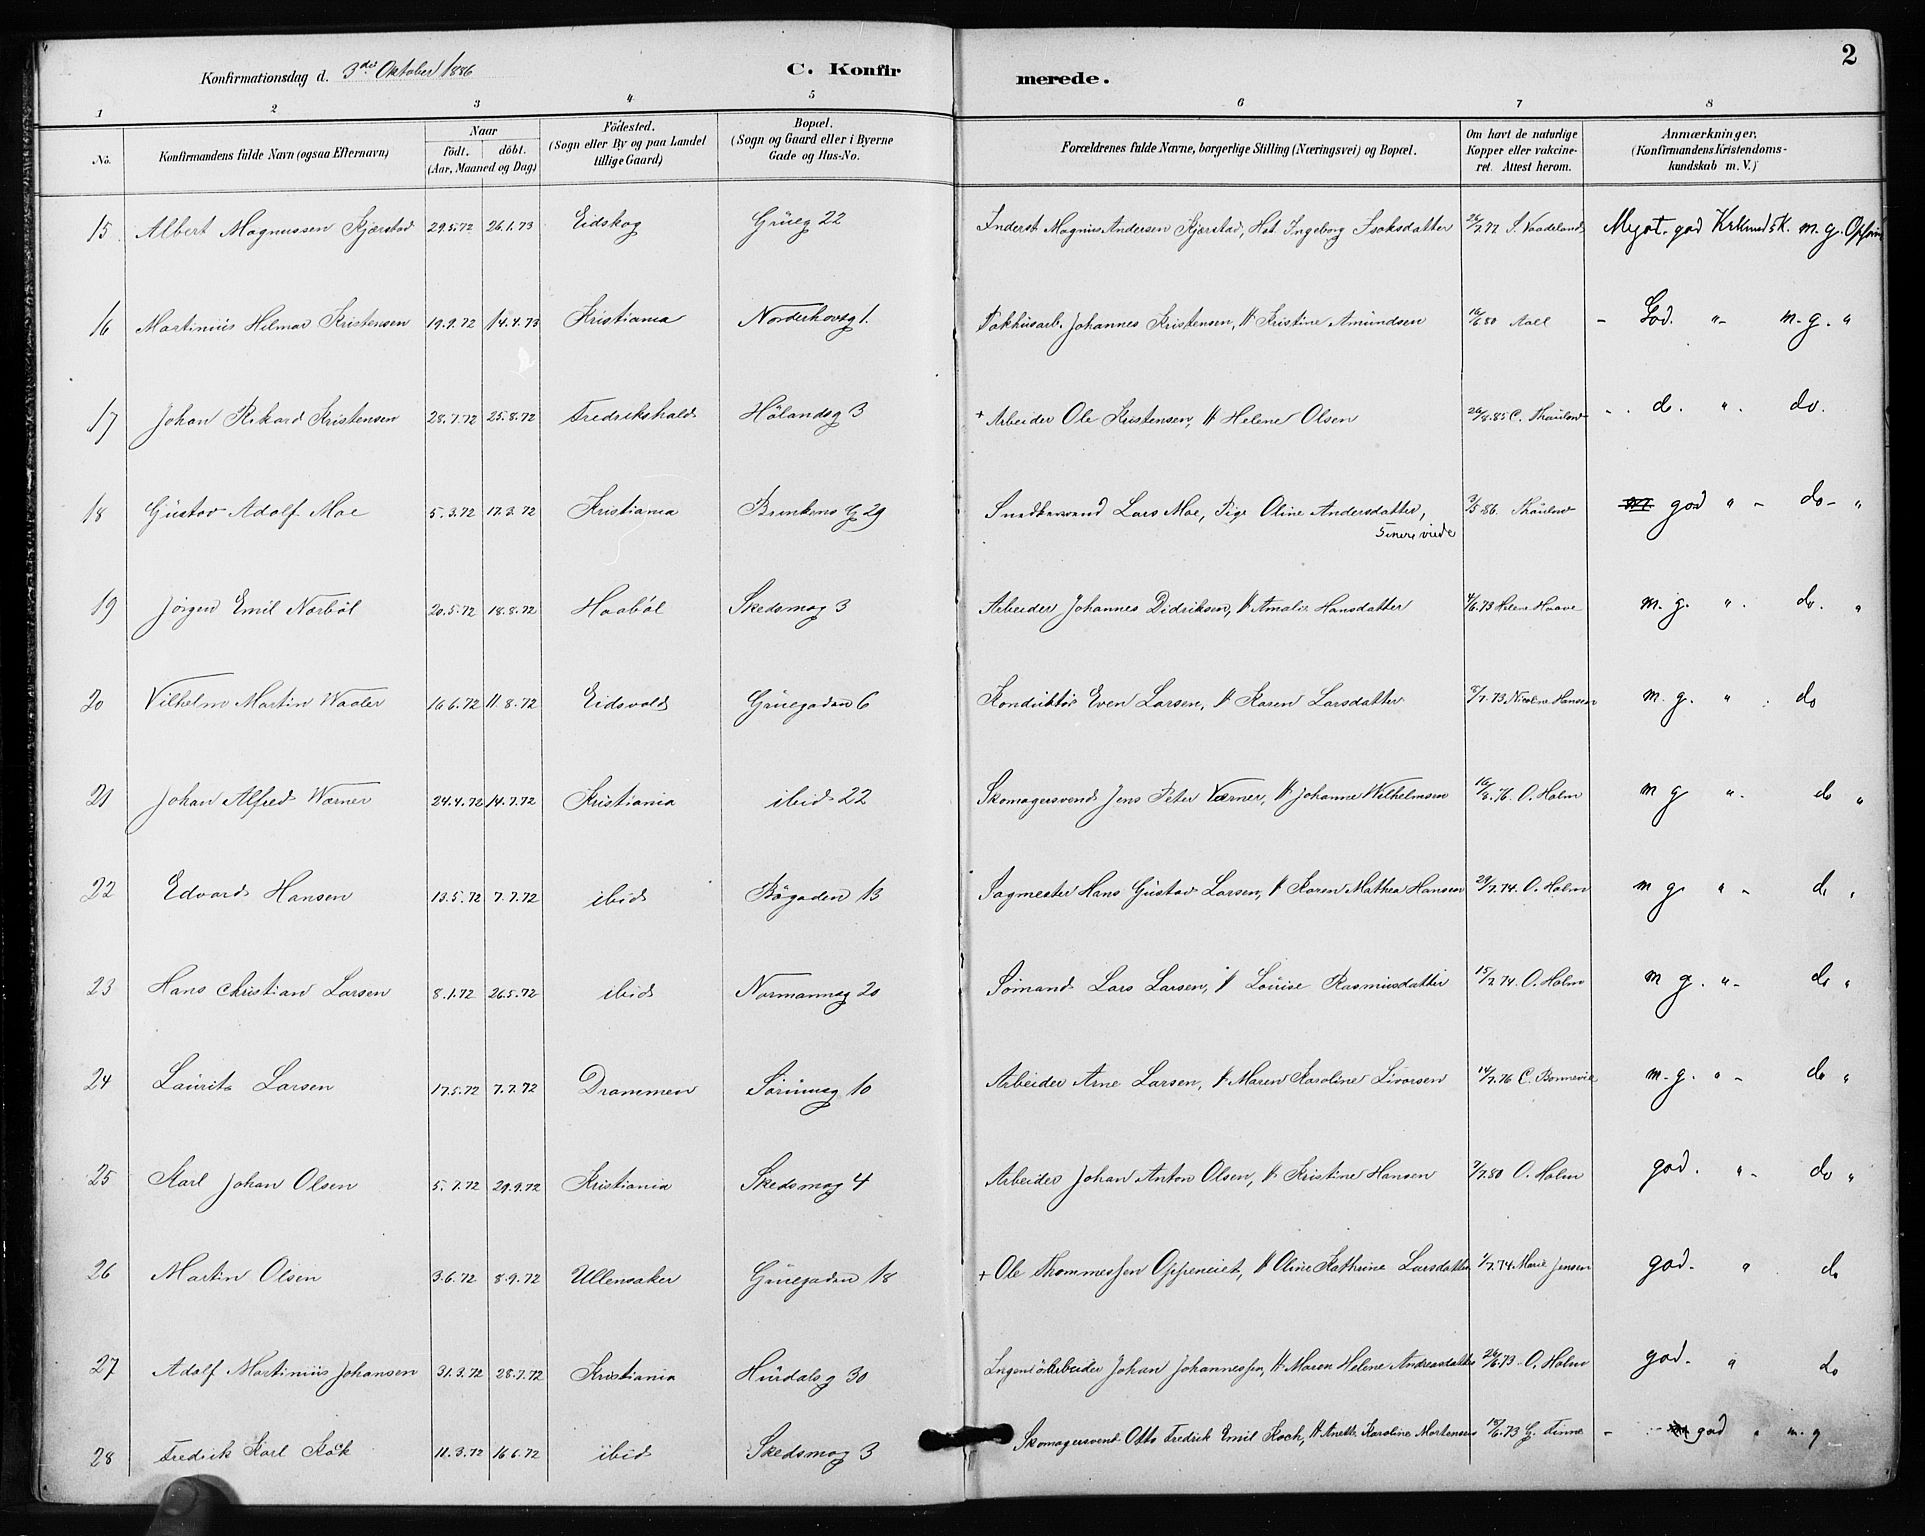 Konfirmationsdag d. 3die Oktober 1886 C. Konfirmerede. 2
1 2 3 4 5 6 7 8
No. Konfirmandens fulde Navn (ogsaa Efternavn) Naar født. døbt. (Aar, Maaned og Dag) Födested. (Sogn eller By og paa Landet tillige Gaard) Bopæl. (Sogn og Gaard eller i Byerne Gade og Hus-No. Forældrenes fulde Navne, borgerlige Stilling (Næringsvei) og Bopæl. Om havt de naturlige Kopper eller vakcineret. Attest herom. Anmærkninger. (Konfirmandens Kristendomskundskab m. V.)
15 Albert Magnussen Kjærstad 29.5.72 26.1.73 Eidskog Grüeg 22 Inderst Magnus Andersen Kjærstad, Hst. Ingeborg Isaksdatter 26/7.72 S. Vaadeland Meget god Krkundsk. m. g. Opførs
16 Martinius Hilmar Kristensen 19.9.72 14.4.73 Kristiania Norderhovsg 1. Pakhusarb. Johannes Kristensen, H Kristine Amundsen 16/6.80 Aall - God. " - m. g. "
17 Johan Rikard Kristensen 28.7.72 25.8.72 Fredrikshald Hölandsg 3 + Arbeider Ole Kristensen, H Helene Olsen 26/8.85 C. Thaulow - do. " do.
18 Güstav Adolf Moe 5.3.72 17.3.72 Kristiania Brinkens G 29 Snedkersvend Lars Moe, Pige Oline Andersdatter, 2/5.86. Thaulow god " - do - "
senere viede
19 Jørgen Emil Norbøl 20.5.72 18.8.72 Haabøl Skedsmog 3 Arbeider Johannes Didriksen, H Amalie Hansdatter 4/6.73 Helene Haave m. g. " do. "
20 Vilhelm Martin Waaler 16.6.72 11.8.72 Eidsvold Grüegaden 6 Konduktør Even Larsen, H Karen Larsdatter 8/7.73 Nicoline Hansen m. g. " do
21 Johan Alfred Wærner 24.4.72 14.7.72 Kristiania ibid 22 Skomagersvend Jens Peter Værner, H Johanne Wilhelmsen 16/8.76. O. Holm m g " do "
22 Edvard Hansen 13.5.72 7.7.72 ibid Bögaden 13 Sagmester Hans Güstav Larsen, H Karen Mathea Hansen 29/7.74. O. Holm m g. " - do "
23 Hans Christian Larsen 8.1.72 26.5.72 ibid Normannsg 20 Sömand Lars Larsen, H Löuise Rasmusdatter 15/7.74. O. Holm m g. " - do "
24 Laurits Larsen 17.5.72 7.7.72 Drammen Sørumsg 10 Arbeider Arne Larsen, H Maren Karoline Sivarsen 14/7.76 C. Bonnevie m. g. " - do "
25 Karl Johan Olsen 5.7.72 29.9.72 Kristiania Skedsmog 4 Arbeider Johan Anton Olsen, H Kristine Hansen 7/7.80 O. Holm god. " - do "
26 Martin Olsen 3.6.72 8.9.72 Ullensaker Grüegaden 18 + Ole Thommessen Oppeneiet, H Oline Kathrine Larsdatter 1/7.74 Marie Jensen god. " do
27 Adolf Martinius Johansen 31.3.72 28.7.72 Kristiania Hürdalsg 30 Arbeider Johan Johannessen, H Maren Helene Andreasdatter 26/6.73 O. Holm god. " do
28 Fredrik Karl Kock 11.3.72 16.6.72 ibid Skedsmog 3 Skomagersvend Otto Fredrik Emil Koch, H Anette Karoline Mortensen 18/6.73 G. Finne - god " m. g